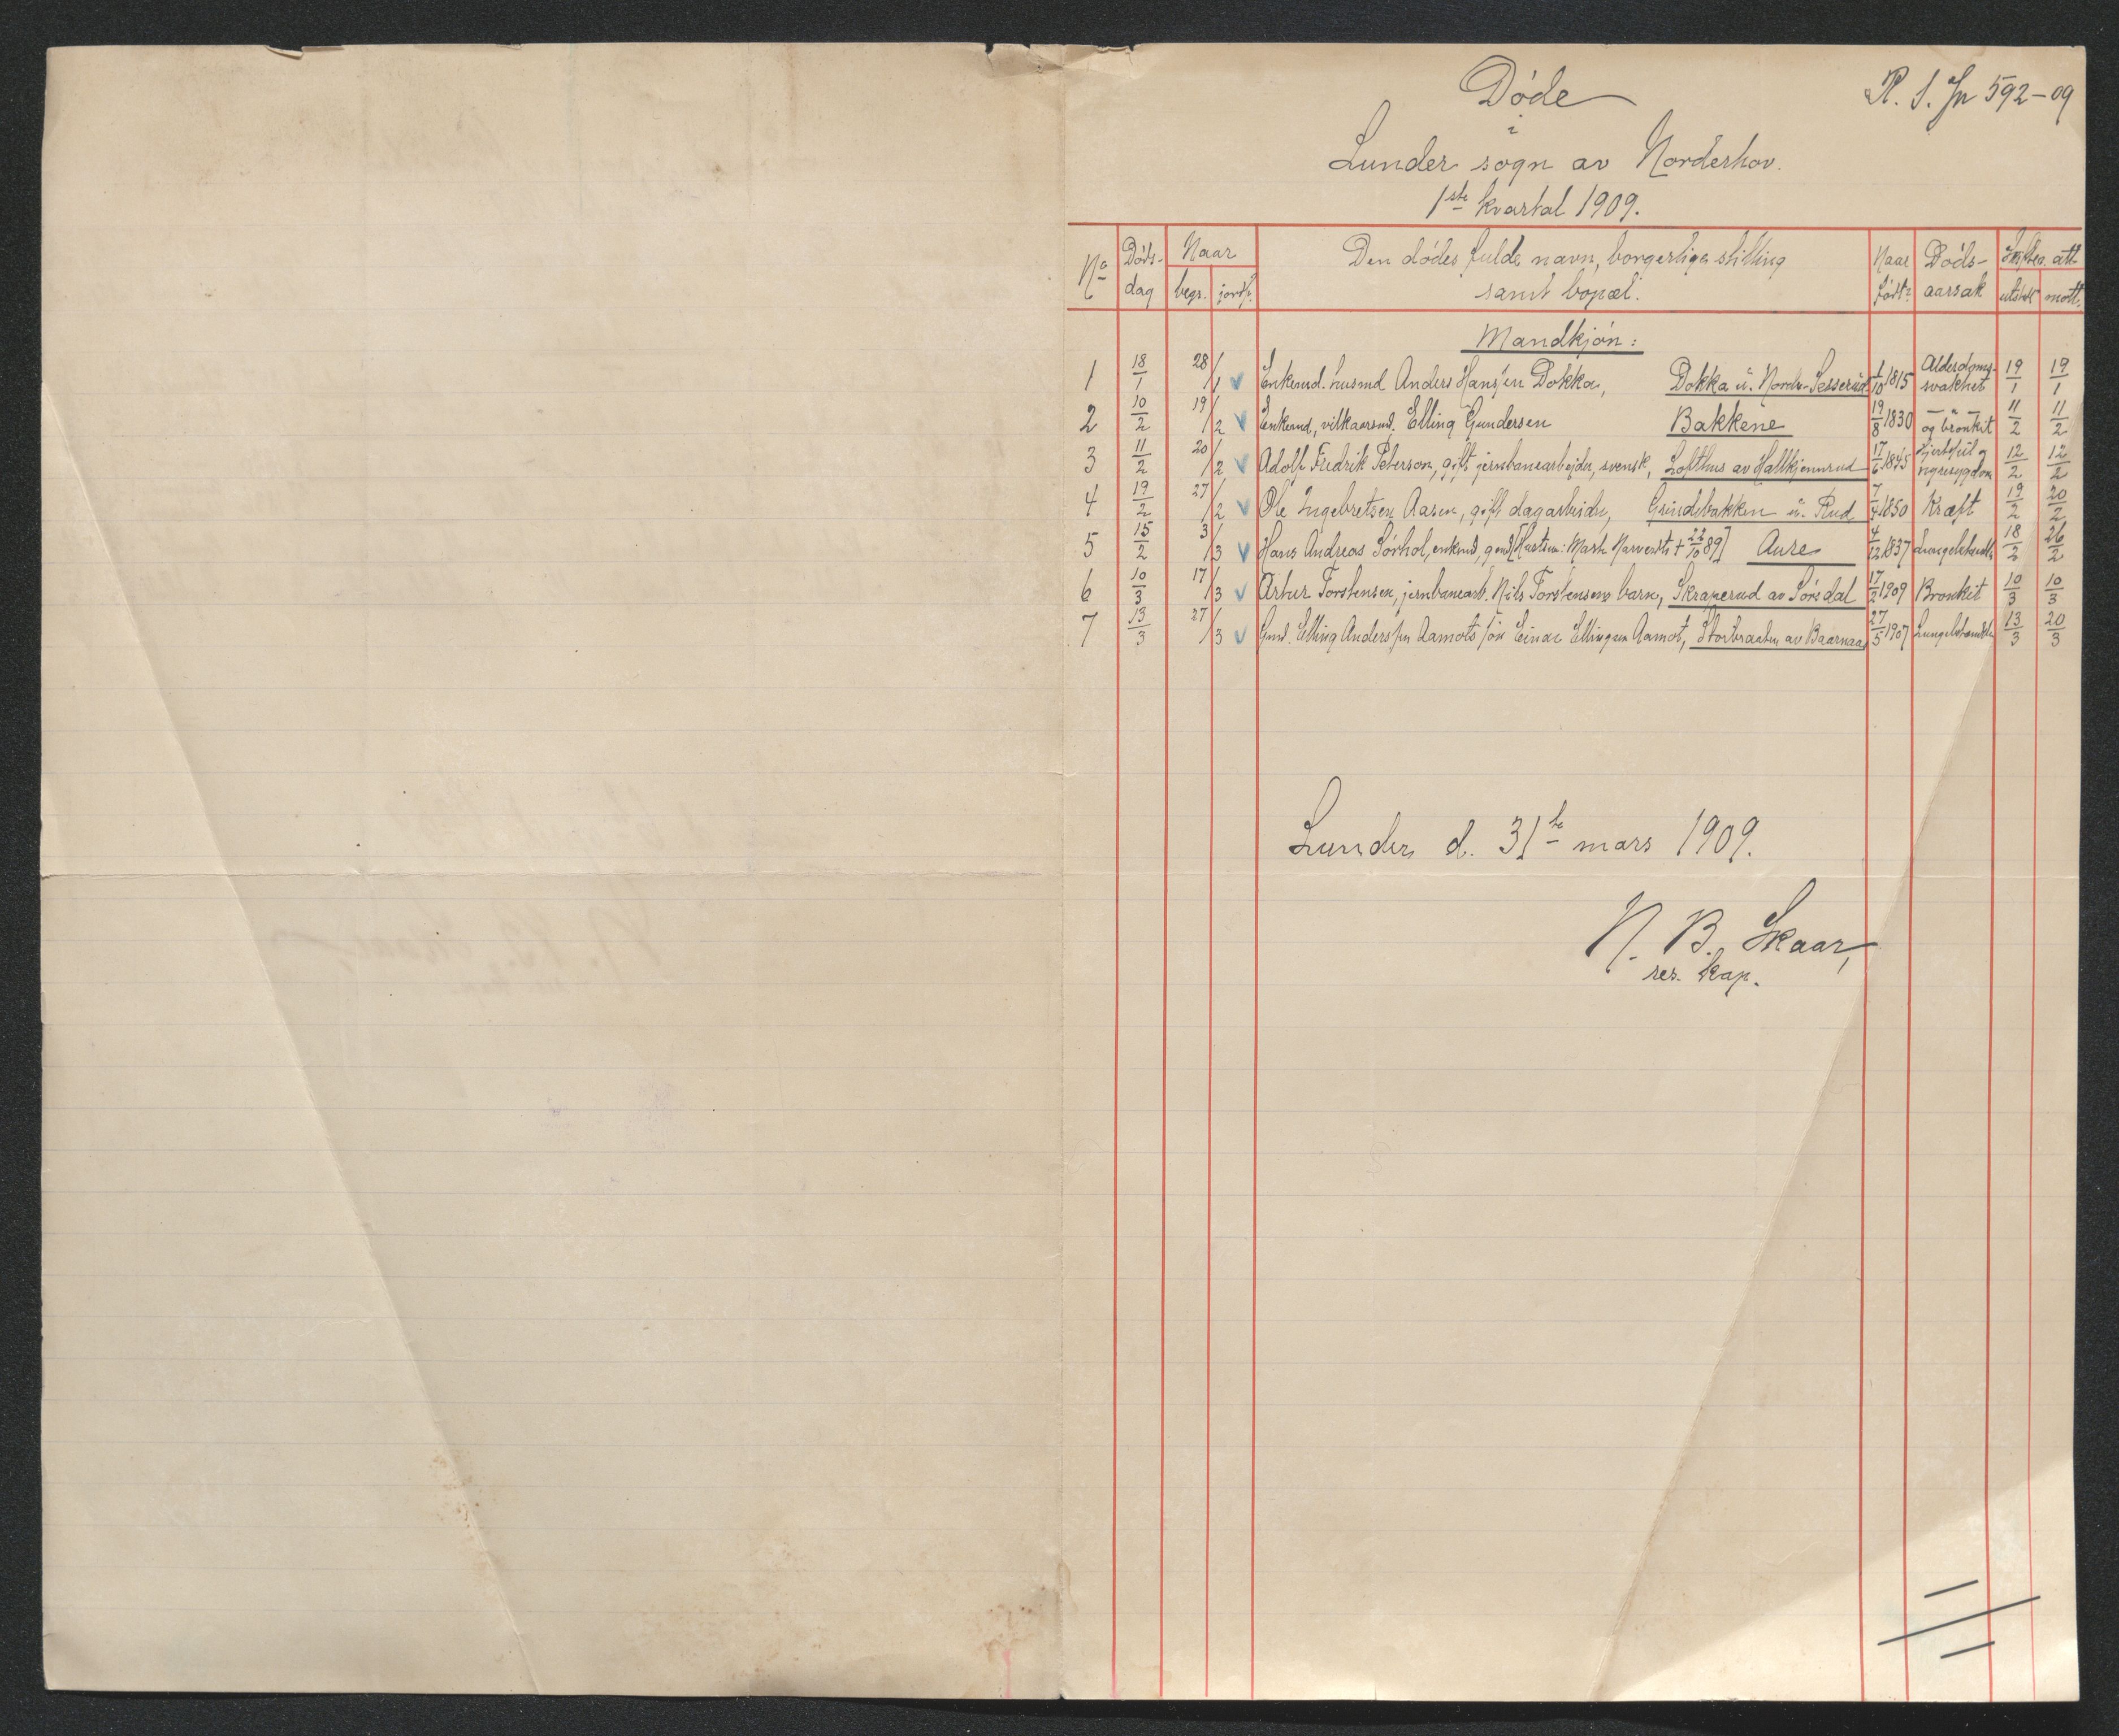 Døde
R. S. Jn 592-09
i
Lunder sogn av Norderhov.
1ste kvartal 1909.
No Døds-dag Naar begr. jordf. Den dødes fulde navn, borgerlige stilling samt bopæl. Naar født? Døds-aarsak att. utstedt mott.
Mandkjøn:
1 18/1 28/1 Enkemd. husmd Anders Hansen Dokka, Dokka u. Nordr. Sesserud 1/10 1815 Alderdoms-svakhet 19/1 19/1
2 10/2 19/2 Enkemd, vilkaarsmd. Elling Gundersen Bakkene 19/8 1830 — " — og bronkit 11/2 11/2
3 11/2 20/2 Adolf Fredrik Peterson, gift jernbanearbejder, svensk, Lofthus av Hallkjennrud 17/6 1845 Hjertefeil og nyresygdom 12/2 12/2
4 19/2 27/2 Ole Ingebretsen Aasen, gift dagarbeider, Grindebakken u. Rud 7/4 1850 Kræft 19/2 20/2
5 15/2 3/3 Hans Andreas Sørhol, enkemd, gmd [Hustru: Marth. † 22/10 89] Aure 4/12 1837 Lungebetændelse 18/2 26/2
6 10/3 17/3 Artur Torstensen, jernbanearb. Nils Torstensens barn, Skraperud av Sørsdal 17/2 1909 Bronkit 10/3 10/3
7 13/3 27/3 Gmd. Elling Anderssen Aamots søn Einar Ellingsen Aamot, Storbraaten av Baarnaas 27/5 1907 Lungebetændelse 13/3 20/3
Lunder d. 31te mars 1909.
N. B. Skaar,
res. kap.